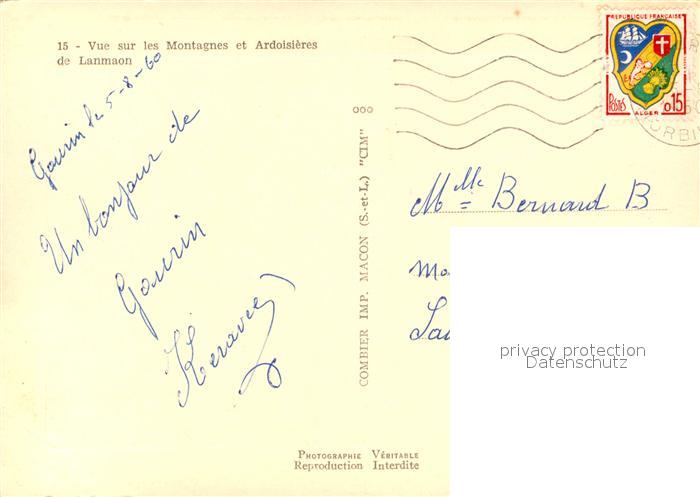 15 - Vue sur les Montagnes et Ardoisières
de Lanmaon
Gourin le 5-8-60
Un bonjour de
Gourin
COMBIER IMP. MACON (S.-et-L.) "CIM"
RÉPUBLIQUE FRANÇAISE
POSTES
0,15
ALGER
Mlle Bernard B
privacy protection
Datenschutz
PHOTOGRAPHIE VÉRITABLE
Reproduction Interdite